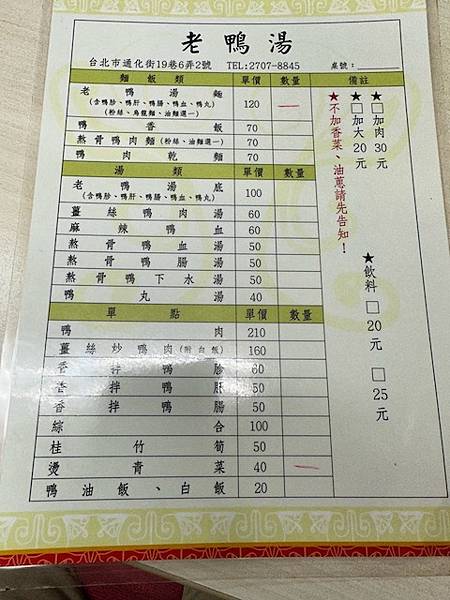 老鴨湯
台北市通化街19巷6弄2號 TEL:2707-8845 桌號:
麵飯類 單價 數量 備註
老鴨湯麵 120
(含鴨胗、鴨肝、鴨腸、鴨血、鴨丸)
(粉絲、烏龍麵、油麵選一)
鴨香飯 70
熬骨鴨肉麵(粉絲、油麵選一) 70
鴨肉乾麵 70
湯類 單價 數量
老鴨湯底 100
(含鴨胗、鴨肝、鴨腸、鴨血、鴨丸)
薑絲鴨肉湯 60
麻辣鴨血 60
熬骨鴨血湯 50
熬骨鴨腸湯 50
熬骨鴨下水湯 50
鴨丸湯 40
單點 單價 數量
鴨肉 210
薑絲炒鴨肉(附白飯) 160
香拌鴨胗 60
香拌鴨肝 50
香拌鴨腸 50
綜合 100
桂竹筍 50
燙青菜 40
鴨油飯、白飯 20
★□加肉30元
★□加大20元
★不加香菜、油蔥請先告知!
★飲料□20元 □25元